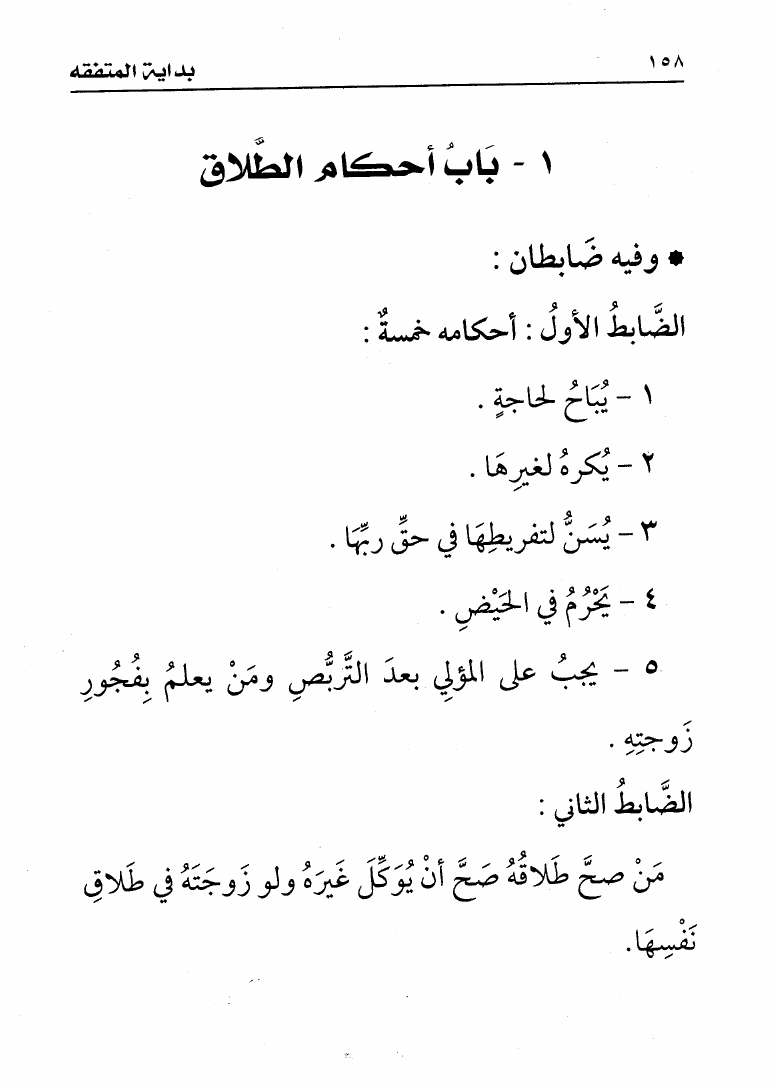 ١٥٨
بداية المتفقه
١ - بَابُ أحكام الطَّلاق
* وفيه ضَابطان :
الضَّابطُ الأولُ : أحكامه خمسةٌ :
١ - يُبَاحُ لحاجةٍ .
٢ - يُكرهُ لغيرِهَا .
٣ - يُسَنُّ لتفريطِهَا في حقِّ ربِّهَا .
٤ - يَحْرُمُ في الحَيْضِ .
٥ - يجبُ على المؤلي بعدَ التَّربُّصِ ومَنْ يعلمُ بِفُجُورِ
زَوجتِهِ .
الضَّابطُ الثاني :
مَنْ صحَّ طَلاقُهُ صَحَّ أنْ يُوَكِّلَ غَيرَهُ ولو زَوجَتَهُ في طَلاقِ
نَفْسِهَا.